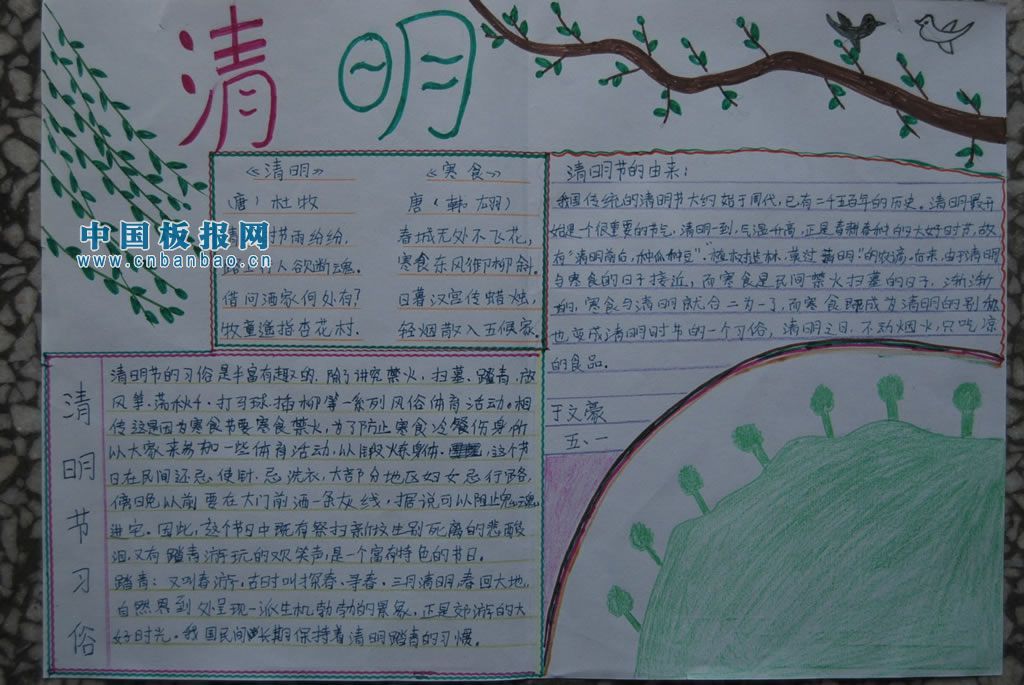 清明
《清明》
(唐)杜牧
时节雨纷纷,
人欲断魂。
借问酒家何处有?
牧童遥指杏花村.
《寒食》
唐(韩翃)
春城无处不飞花,
寒食东风御柳斜.
日暮汉宫传蜡烛,
轻烟散入五侯家.
清明节的由来:
我国传统的清明节大约始于周代,已有二千五百年的历史。清明最开
始是个很重要的节气,清明一到,气温升高,正是春耕春种的大好时节,故
有"清明前后,种瓜种豆"."植树造林,莫过清明"的农谚,后来,由于清明
与寒食的日子接近,而寒食是民间禁火扫墓的日子,渐渐
的,寒食与清明就合二为一了,而寒食既成为清明的别称
也变成清明时节的一个习俗,清明之日,不动烟火,只吃凉
的食品。
于文豪
五、一
清明节习俗
清明节的习俗是丰富有趣的,除了讲究禁火,扫墓、踏青,放
风筝.荡秋千.打马球.插柳等一系列风俗体育活动。相
传这是因为寒食节要寒食禁火,为了防止寒食冷餐伤身,所
以大家来参加一些体育活动,以锻炼身体.这个节
日在民间还忌使针,忌洗衣,大部分地区妇女忌行路.
傍晚以前要在大门前洒一条灰线,据说可以阻止鬼魂
进宅。因此,这个节日中既有祭扫新坟生别死离的悲酸
泪,又有踏青游玩的欢笑声,是一个富有特色的节日。
踏青:又叫春游,古时叫探春、寻春.三月清明,春回大地,
自然界到处呈现一派生机勃勃的景象,正是郊游的大
好时光。我国民间长期保持着清明踏青的习惯。
中国板报网
www.cnbanbao.cn